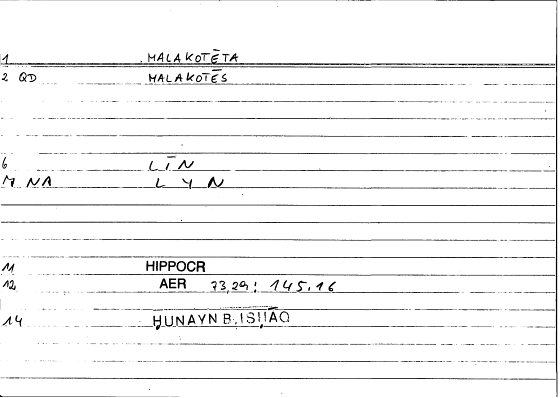 1 MALAKOTĒTA
2 QD MALAKOTĒS
6 LĪN
M NA L Y N
11 HIPPOCR
12 AER 73,29: 145.16
14 ḤUNAYN B. ISḤĀQ